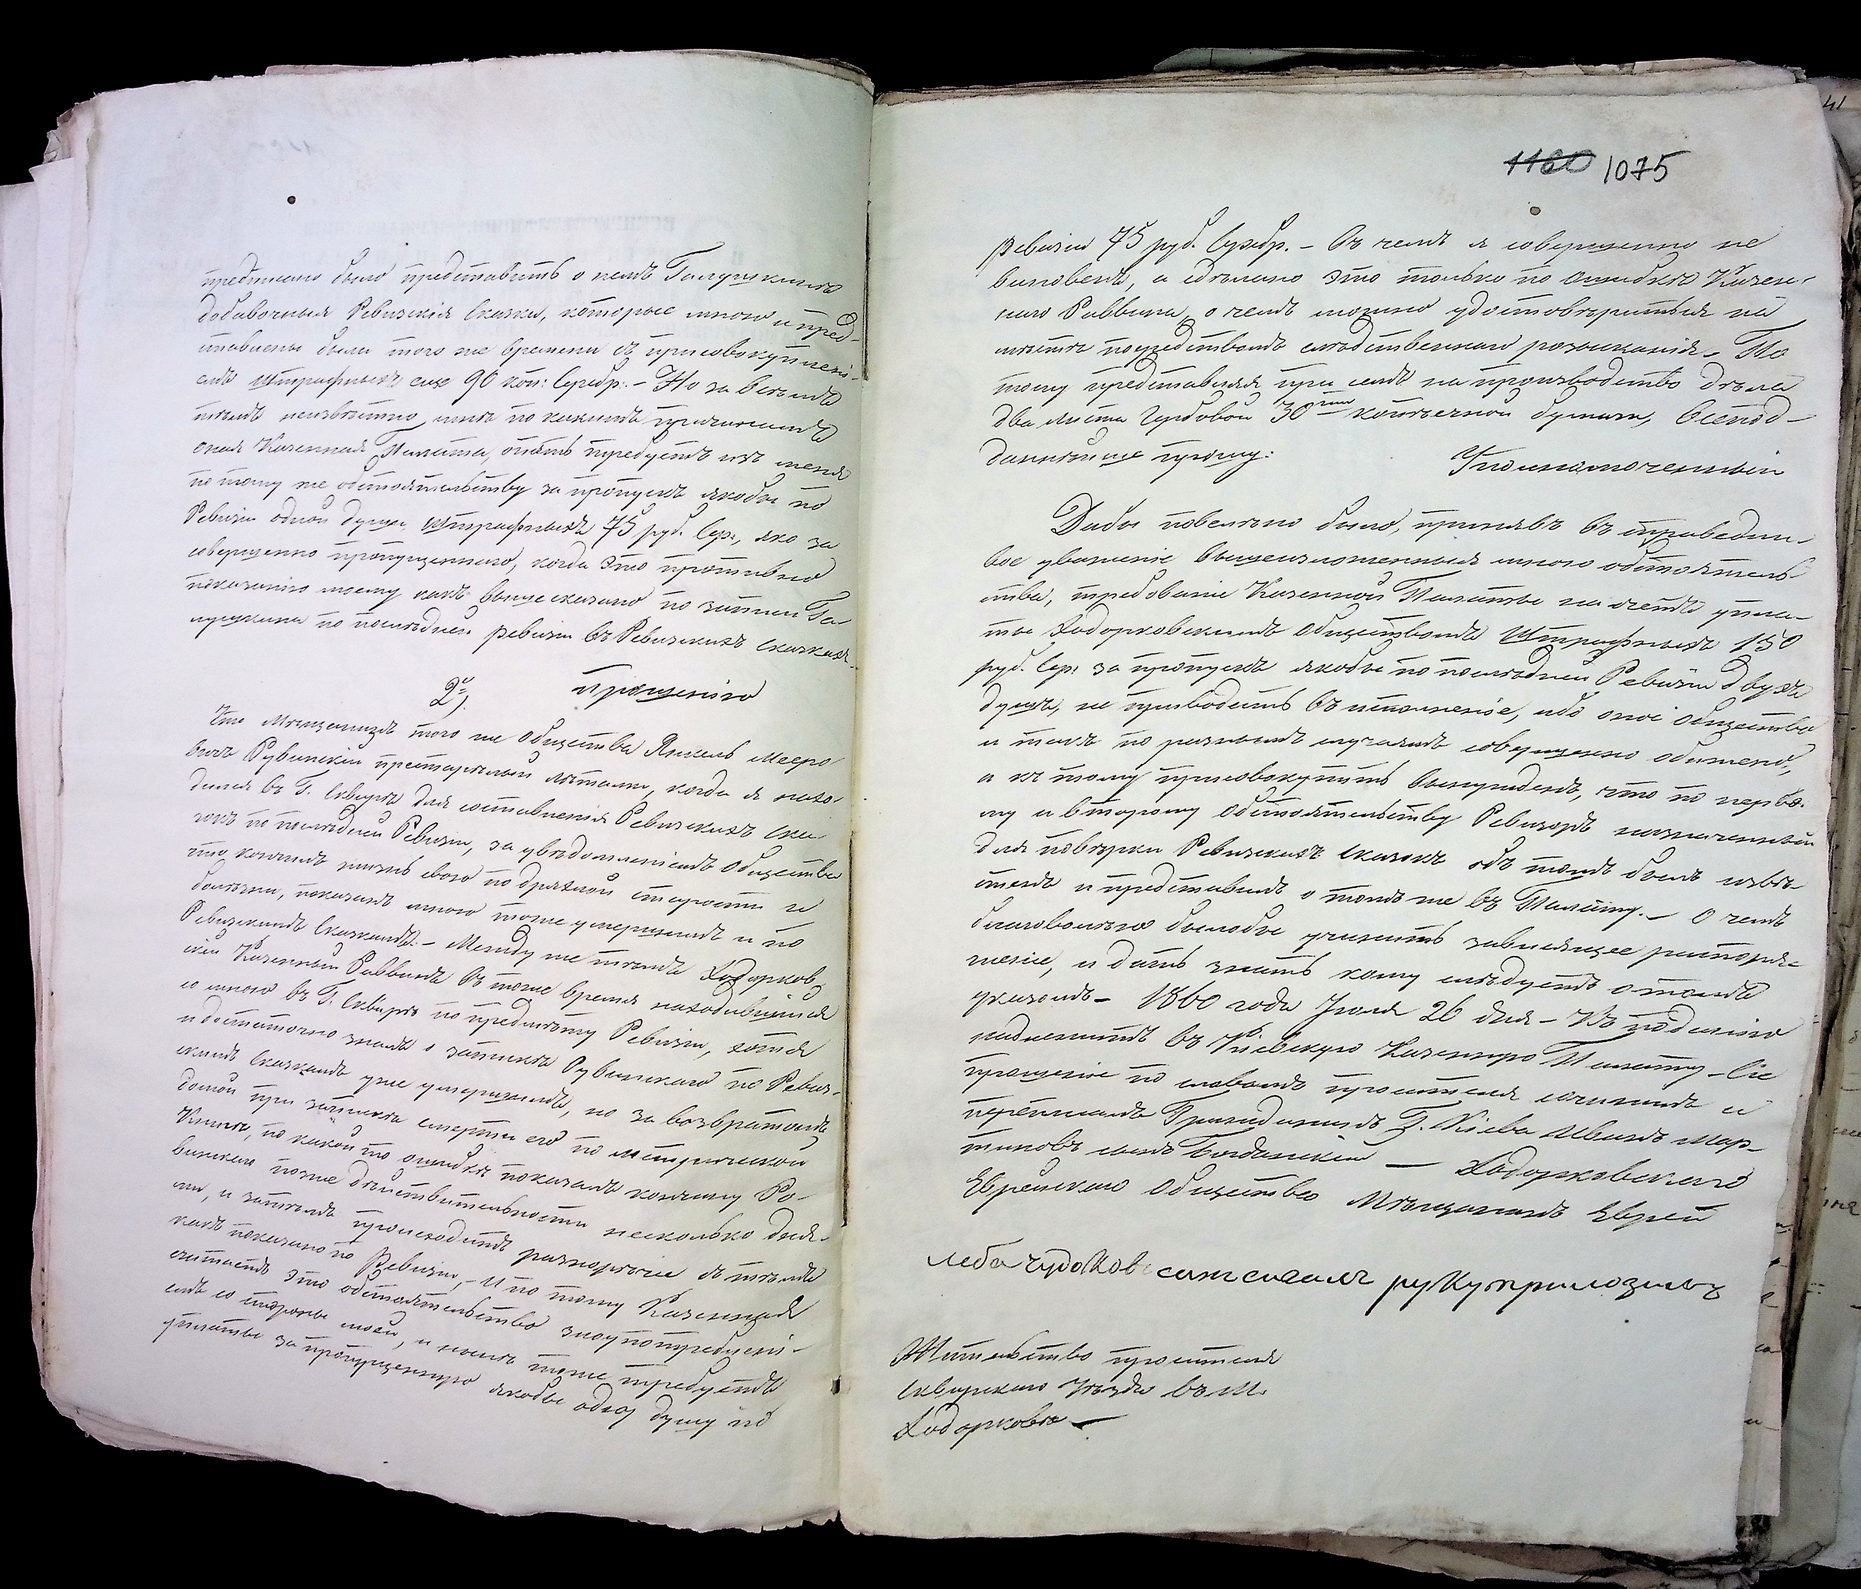 предписано было представить о немъ Галушкинѣ
добавочныя Ревизскія Сказки, которые мною и пред-
ставлены были того же времени съ присовокуплені-
емъ штрафныхъ еще 90 коп: Серебр:- Но за всѣмъ
тѣмъ неизвѣстно мнѣ по какимъ причинамъ
оная Казенная Палата, опять требуетъ изъ меня
по тому же обстоятельству за пропускъ якобы по
Ревизіи одной души штрафныхъ 75 руб. Сер:, яко за
совершенно пропущенного, когда Это противно
показанію моему какъ выше сказано по записи Га-
лушкина по послѣдней ревизіи въ Ревизскихъ сказкахъ.
2е). прошенію
Что Мѣщанинъ того же Общества Янкель Мееро-
вичъ Рувинскій престарелый лѣтами, когда я нахо-
дился въ Г. Сквирѣ для составленія Ревизскихъ ска-
зокъ по послѣдней Ревизіи, за увѣдомленіемъ Общества
что кончилъ жизнь свою по дряхлой старости и
болѣзни, показанъ мною тоже умершимъ и по
Ревизскимъ Сказкамъ.- Между же тѣмъ Ходорков-
скій Казенный Раввинъ въ тоже время находившійся
со мною въ Г. Сквирѣ по предмѣту Ревизіи, хотя
и достаточно зналъ о запискѣ Рувинскаго по Ревиз-
скимъ Сказкамъ уже умершимъ, но за возвратомъ
домой при запискѣ смерти его по метрической
Книгѣ, по какой то ошибкѣ показалъ кончину Ру-
винскаго позже дѣйствительности несколько дня-
ми, и затѣмъ происходитъ разнорѣчіе съ тѣмъ
какъ показано по Ревизіи,- И по тому Казенная
считаетъ Это обстоятельство злоупотреблені-
емъ со стороны моей, и нынѣ тоже требуетъ
уплаты за пропущенную якобы одну душу по
1160 1075
ревизіи 75 руб. Серебр.- въ чемъ я совершенно не
виновенъ, а сдѣлано это только по ошибкѣ Казен-
наго Раввина, о чемъ можно удостовѣриться на
мѣстѣ посредствомъ слѣдственнаго розысканія.- По
тому представляя при семъ на производство дѣла
два листа Гербовой 30ти копѣечной бумаги, всепод-
даннѣйше прошу:
Уполномоченный
Дабы повелѣно было, принявъ въ справедли-
вое уваженіе вышеизложенныя мною обстоятель-
ства, требованіе Казенной Палаты на счетъ упла-
ты Ходорковскимъ Обществомъ Штрафныхъ 150
руб. Сер: за пропускъ якобы по послѣдней Ревизіи двухъ
душъ, не приводить въ исполненіе, ибо оное Общество
и такъ по разнымъ случаямъ совершенно обижено,
а къ тому присовокупить вынужденъ, что по перво-
му и второму Обстоятельству Ревизоръ назначенный
для повѣрки Ревизскихъ Сказокъ объ томъ былъ извѣ-
стенъ и представилъ о томъ же въ Палату.- О чемъ
благоволено было бы учинить зависящее распоря-
женіе, и дать знать кому слѣдуетъ о томъ
указомъ.- 1860 года Іюля 26 дня.- Къ поданію
надлежитъ въ Кіевскую Казенную Палату.- Сіе
прошеніе по словамъ просителя сочинилъ и
переписалъ Гражданинъ Г. Кіева Иванъ Мар-
тиновъ сынъ Богданскій — Ходорковскаго
Еврейскаго Общества Мѣщанинъ Еврей
леба чудоков сим писалъ руку приложилъ
Жительство просителя
Сквирского Уѣзда въ М.
Ходорковѣ —